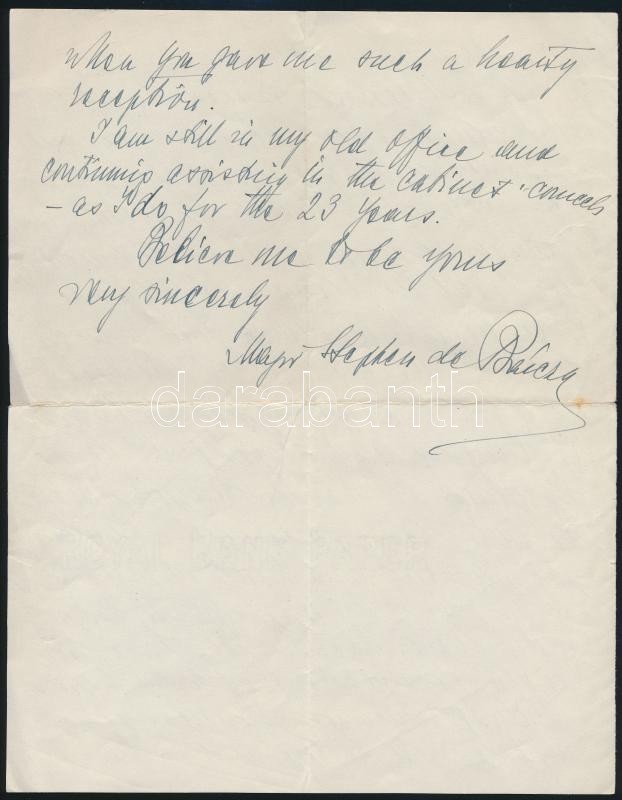 when you gave me such a hearty
reception.
I am still in my old office and
continuing assisting in the cabinet-councils
– as I do for the 23 years.
Believe me to be yours
very sincerely
Major Stephen de Bárczy
darabanth